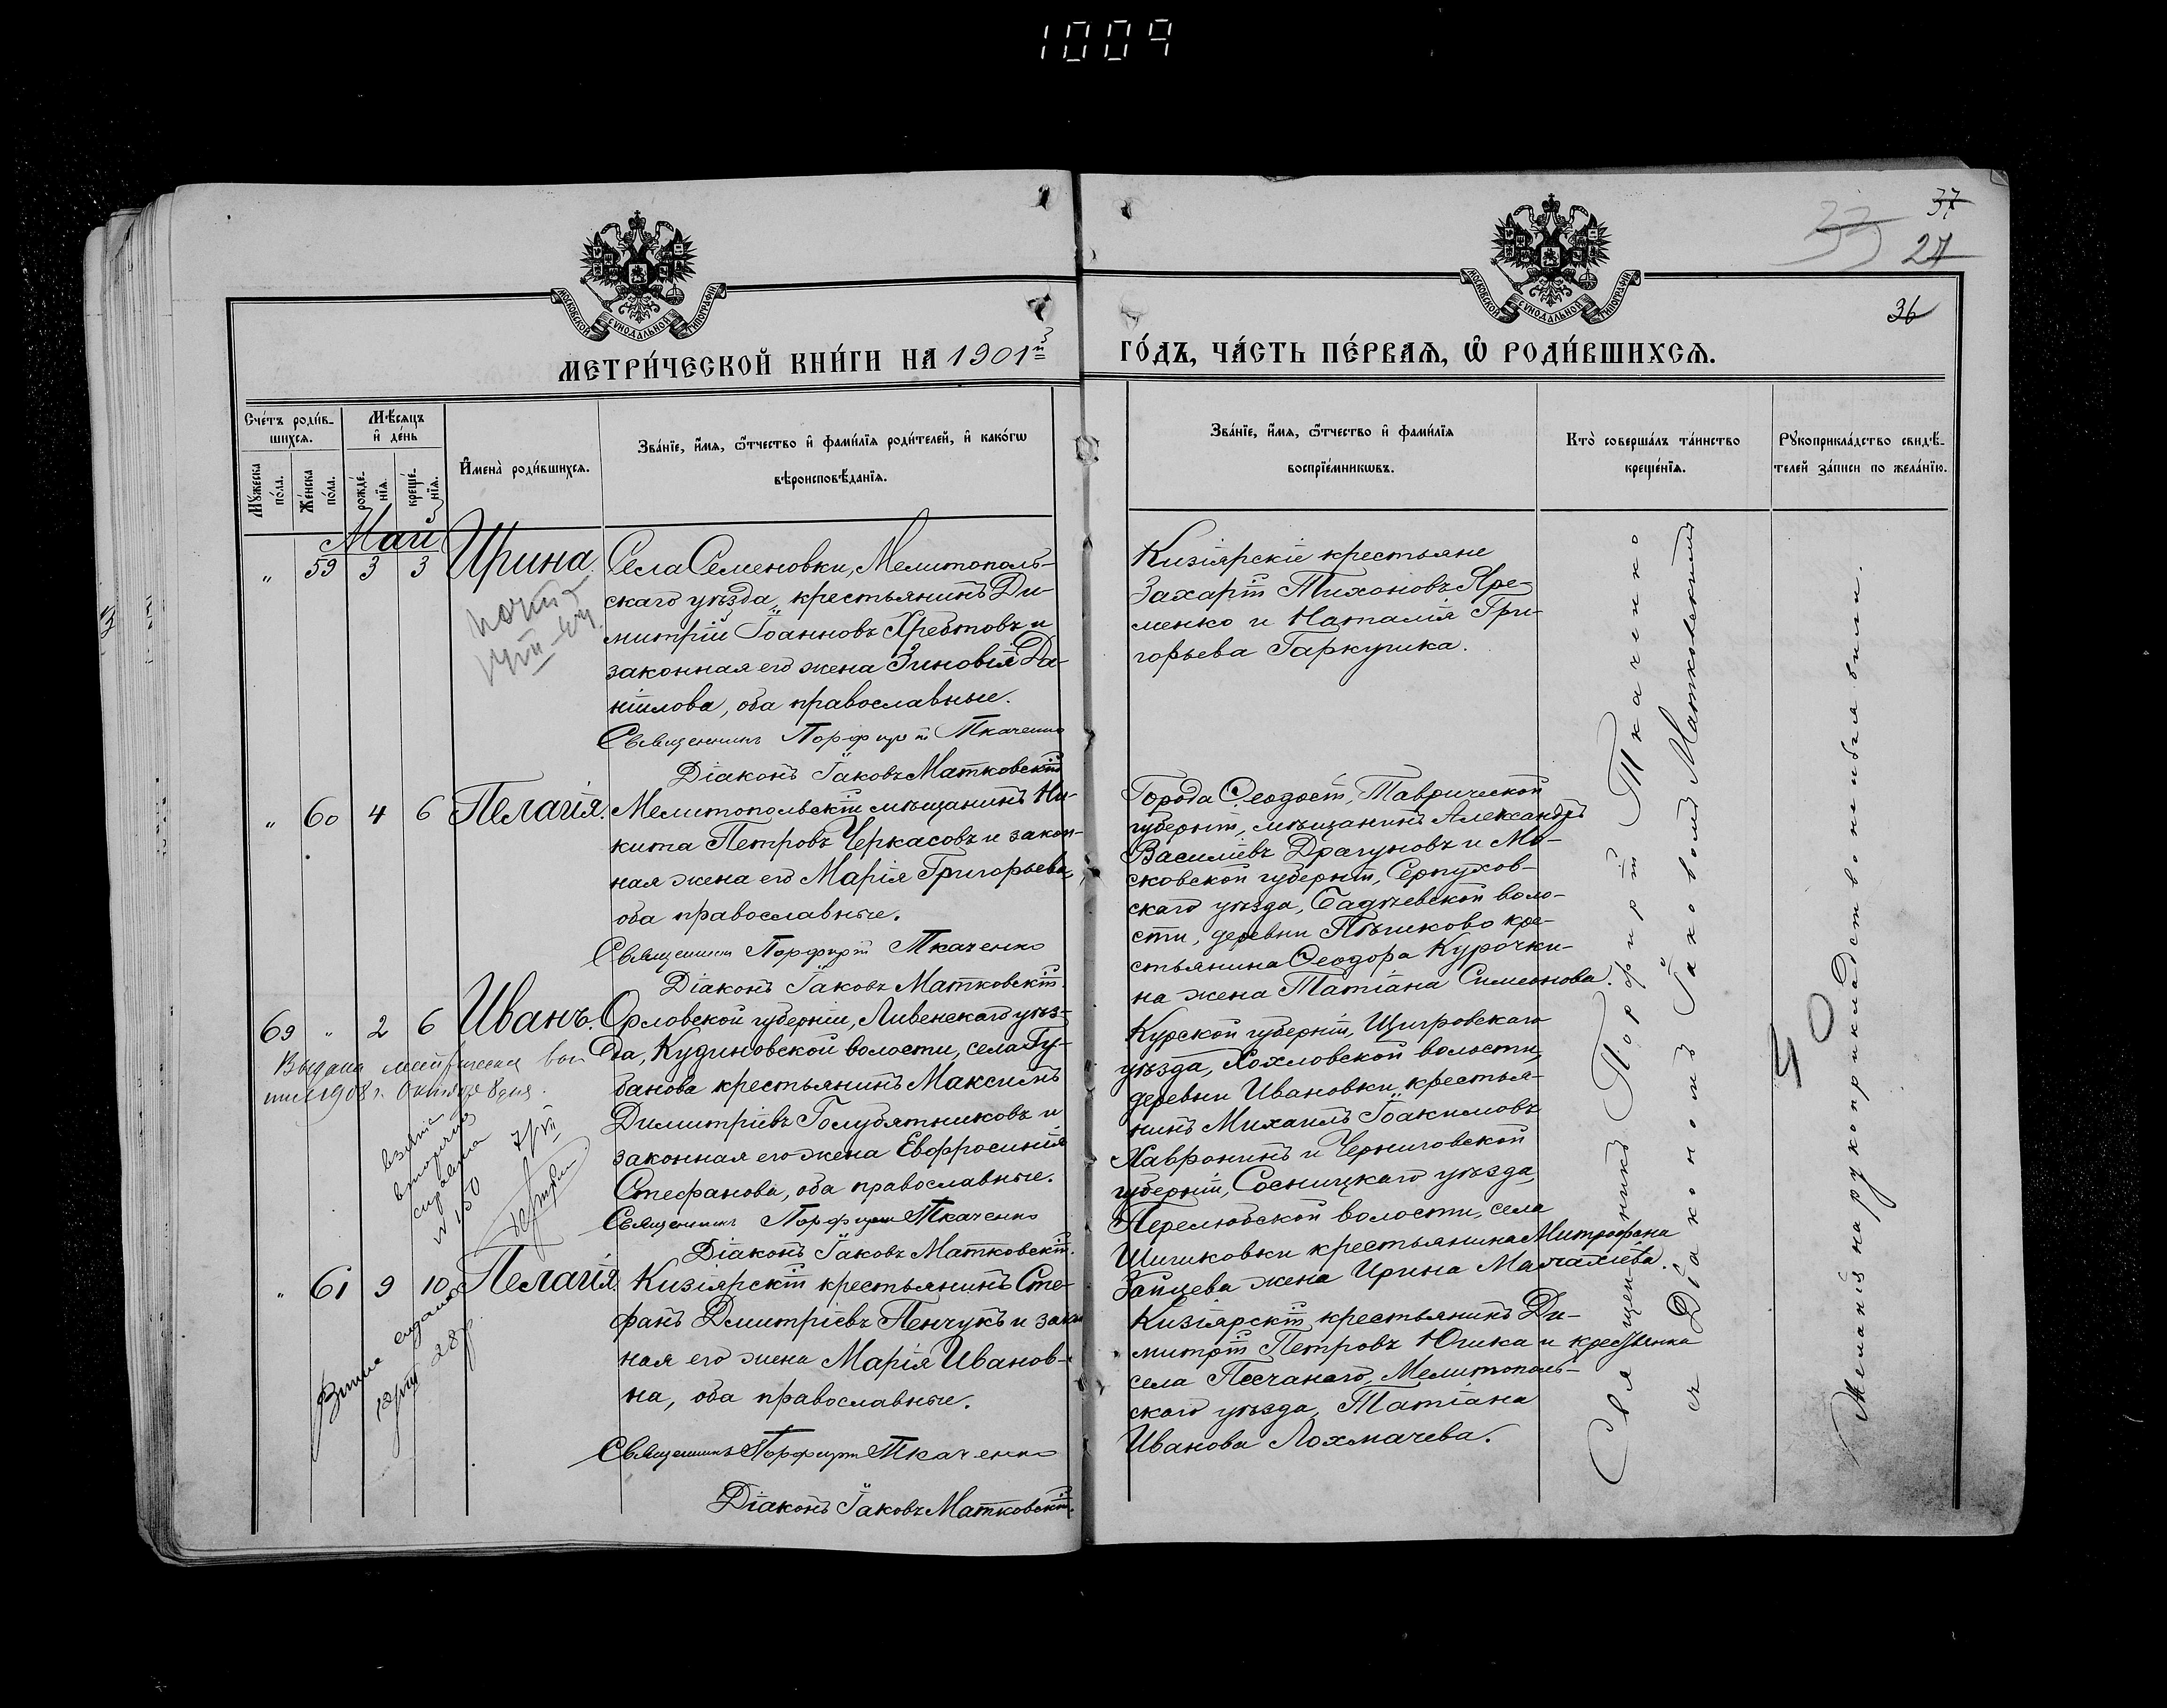 1009
37
33
27
36
МОСКОВСКОЙ СѴНОДАЛЬНОЙ ТИПОГРАФІИ
МОСКОВСКОЙ СѴНОДАЛЬНОЙ ТИПОГРАФІИ
МЕТРИ́ЧЕСКОЙ КНИ́ГИ НА 1901й
ГО́ДЪ, ЧА́СТЬ ПЕ́РВАѦ, Ѡ҆ РОДИ́ВШИХСѦ.
Сче́тъ роди́в-
шихсѧ.
Мѣ́сѧцъ
и҆ де́нь
Мꙋ́жеска
по́ла.
Же́нска
по́ла.
рожде́-
нїѧ.
креще́-
нїѧ.
И҆мена̀ роди́вшихсѧ.
Зва́нїе, и҆́мѧ, ѻ҆́тчество и҆ фами́лїѧ роди́телей, и҆ како́гѡ
вѣроисповѣ́данїѧ.
Зва́нїе, и҆́мѧ, ѻ҆́тчество и҆ фами́лїѧ
воспрїе́мникѡвъ.
Кто̀ соверша́лъ та́инство
креще́нїѧ.
Рꙋкоприкла́дство свидѣ́-
телей за́писи по жела́нїю.
Май
„ 59 3 3 Ирина.
Села Семеновки, Мелитополь-
скаго уѣзда, крестьянинъ Ди-
митрій Іоанновъ Хребтовъ и
законная его жена Зиновія Да-
ніилова, оба православные.
Священникъ Порфирій Ткаченко
Діаконъ Іаковъ Матковскій
Кизіярскіе крестьяне
Захарій Тихоновъ Яре-
менко и Наталія Гри-
горьева Гаркушка.
„ 60 4 6 Пелагія.
Мелитопольскій мѣщанинъ Ни-
кита Петровъ Черкасовъ и закон-
ная жена его Марія Григорьева,
оба православные.
Священникъ Порфирій Ткаченко
Діаконъ Іаковъ Матковскій.
Города Ѳеодосіи, Таврической
губерніи, мѣщанинъ Александръ
Василіевъ Драгуновъ и Мо-
сковской губерніи, Серпухов-
скаго уѣзда, воло-
сти, деревни кре-
стьянина Ѳеодора Курочки-
на жена Татіана Симеонова.
69 „ 2 6 Иванъ.
Выдана метрическая
1908 г. Октября 8 дня.
Орловской губерніи, Ливенскаго уѣз-
да, Кудиновской волости, села Гу-
банова крестьянинъ Максимъ
Димитріевъ Голубятниковъ и
законная его жена Евфросинія
Стефанова, оба православные.
Священникъ Порфирій Ткаченко
Діаконъ Іаковъ Матковскій.
Курской губерніи, Щигровскаго
уѣзда, Хохловской волости,
деревни Ивановки, крестья-
нинъ Михаилъ Іоакимовъ
Хавронинъ и Черниговской
губерніи, Сосницкаго уѣзда,
Перелюбской волости, села
Шишковки крестьянина Митрофана
Зайцева жена Ирина
„ 61 9 10 Пелагія.
Кизіярскій крестьянинъ Сте-
фанъ Димитріевъ Пенчукъ и закон
ная его жена Марія Иванов-
на, оба православные.
Священникъ Порфирій Ткаченко
Діаконъ Іаковъ Матковскій.
Кизіярскій крестьянинъ Ди-
митрій Петровъ Юшка и крестьянка
села Песчанаго, Мелитополь-
скаго уѣзда, Татіана
Иванова Лохмачева.
Священникъ Порфирій Ткаченко
съ Діакономъ Іаковомъ Матковскимъ
Желанія на рукоприкладство не было.